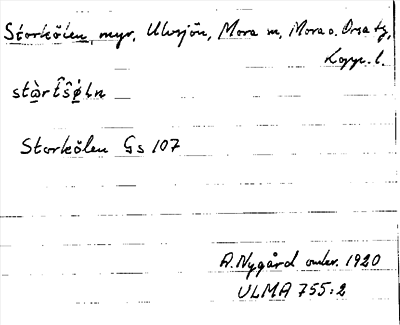 Storkölen, myr, Ulvsjön, Mora sn, Mora o. Orsa tg,
Kopp. l.
stàrt̂ŝö̀Ln
Storkölen Gs 107
A. Nygård under. 1920
ULMA 755:2